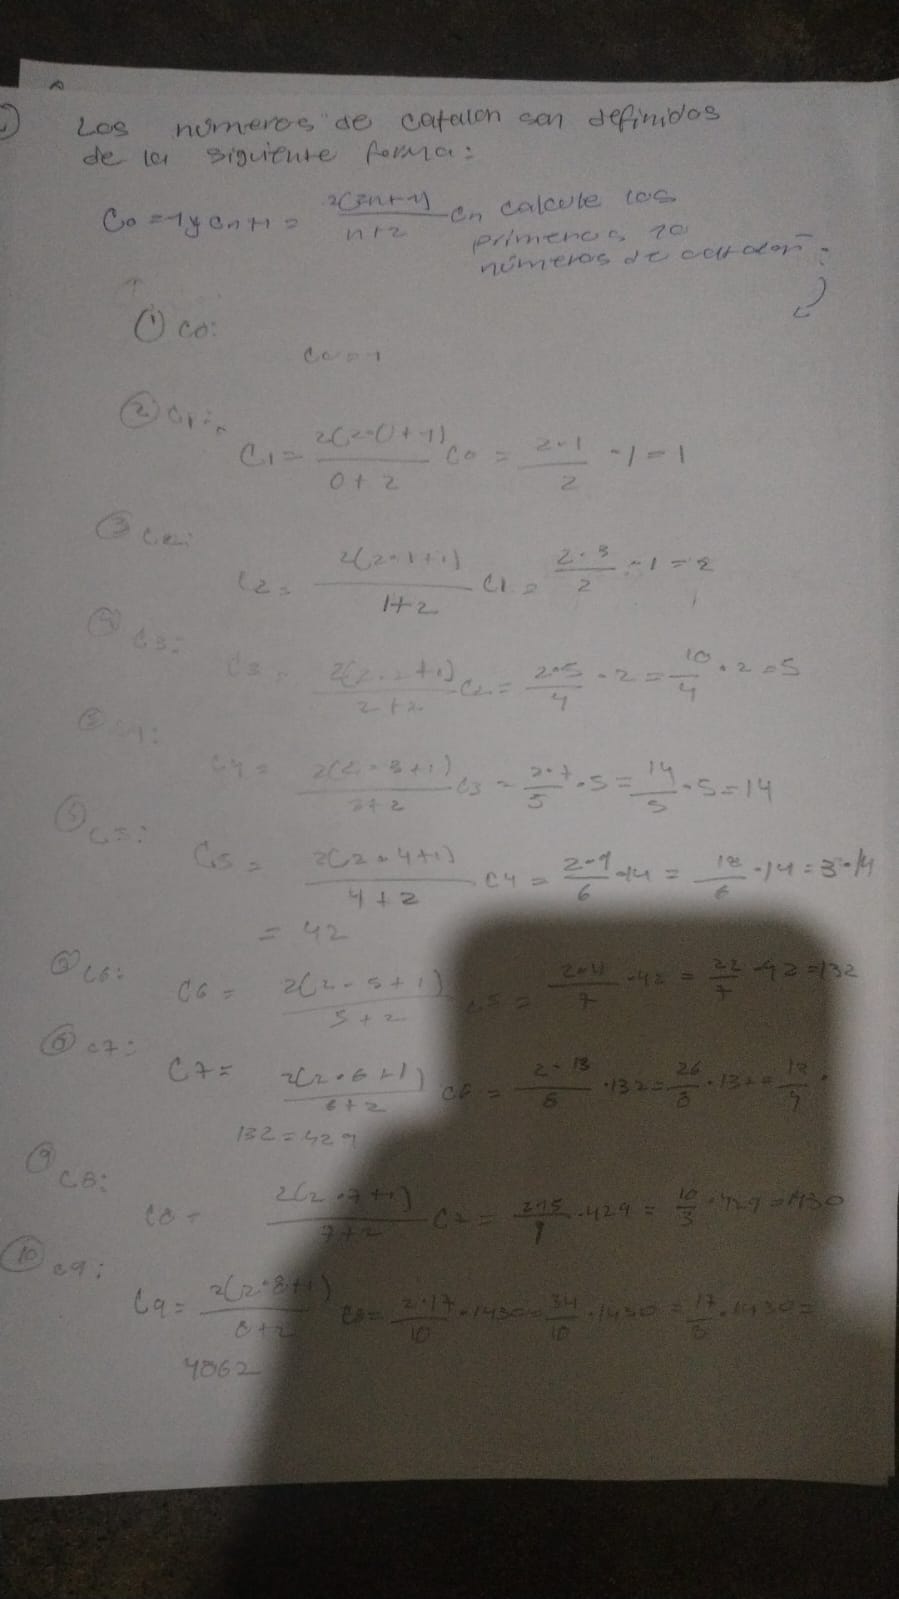 Los números de catalan son definidos
de la siguiente forma:
C0 = 1 y Cn+1 = 2(2n+1)/n+2 Cn calcule los
primeros 10
números de catalan:
① C0:
C0 = 1
② C1:
C1 = 2(2·0+1)/0+2 C0 = 2·1/2 ·1 = 1
③ C2:
C2 = 2(2·1+1)/1+2 C1 = 2·3/2 ·1 = 2
④ C3:
C3 = 2(2·2+1)/2+2 C2 = 2·5/4 ·2 = 10/4 ·2 = 5
⑤ C4:
C4 = 2(2·3+1)/3+2 C3 = 2·7/5 ·5 = 14/5 ·5 = 14
C5:
C5 = 2(2·4+1)/4+2 C4 = 2·9/6 ·14 = 18/6 ·14 = 3·14
= 42
C6:
C6 = 2(2·5+1)/5+2 C5 = 2·11/7 ·42 = 22/7 ·42 = 132
C7:
C7 = 2(2·6+1)/6+2 C6 = 2·13/8 ·132 = 26/8 ·132 =
132 = 429
⑨ C8:
C8 = 2(2·7+1)/7+2 C7 = 2·15/9 ·429 = 10/3 ·429 = 1430
⑩ C9:
C9 = 2(2·8+1)/8+2 C8 = 2·17/10 ·1430 = 34/10 ·1430 = 17/5 ·1430 =
4862